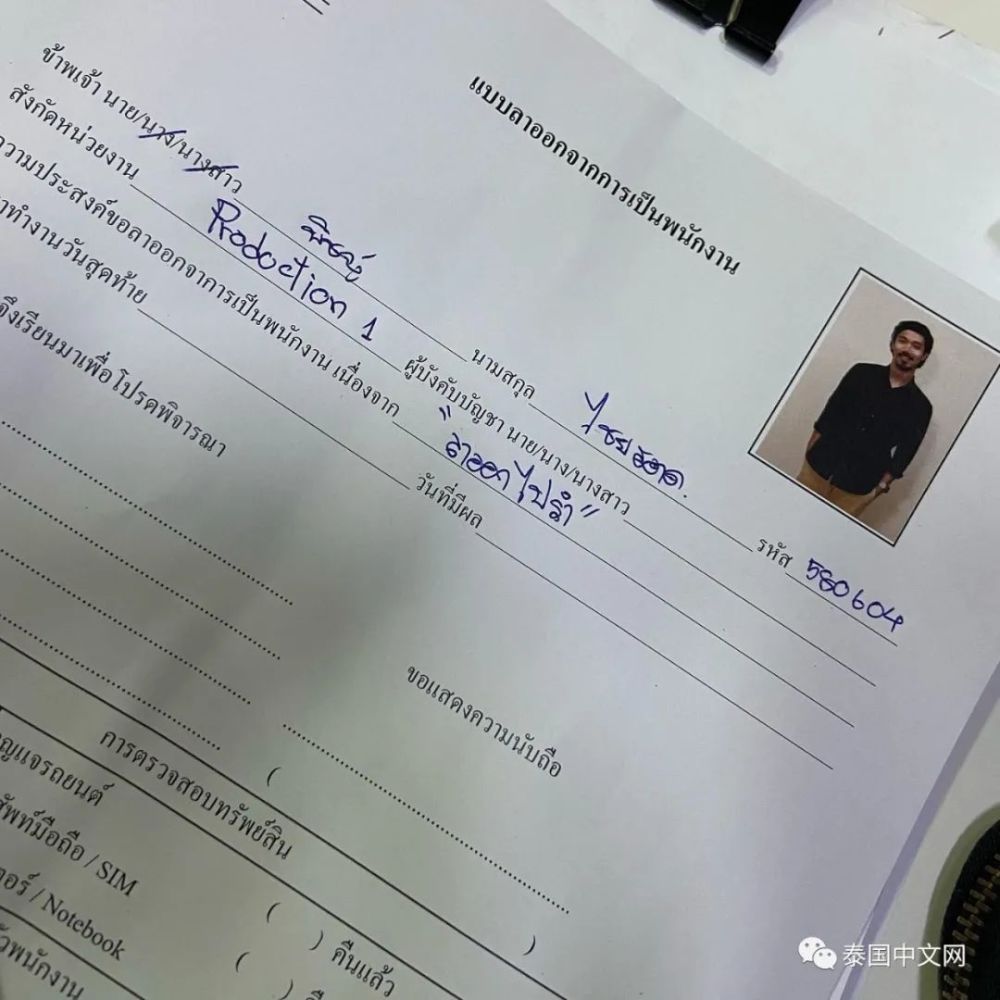 แบบลาออกจากการเป็นพนักงาน
ข้าพเจ้า นาย/นาง/นางสาว พิชญ์ นามสกุล รหัส 580604
สังกัดหน่วยงาน Production 1 ผู้บังคับบัญชา นาย/นาง/นางสาว
ความประสงค์ขอลาออกจาการเป็นพนักงาน เนื่องจาก "ลาออกไปรำ"
ทำงานวันสุดท้าย วันที่มีผล
จึงเรียนมาเพื่อโปรดพิจารณา
ขอแสดงความนับถือ
( )
การตรวจสอบทรัพย์สิน
ญแจรถยนต์ ( ) คืนแล้ว
ศัพท์มือถือ / SIM ( )
อร์ / Notebook
ัวพนักงาน
泰国中文网